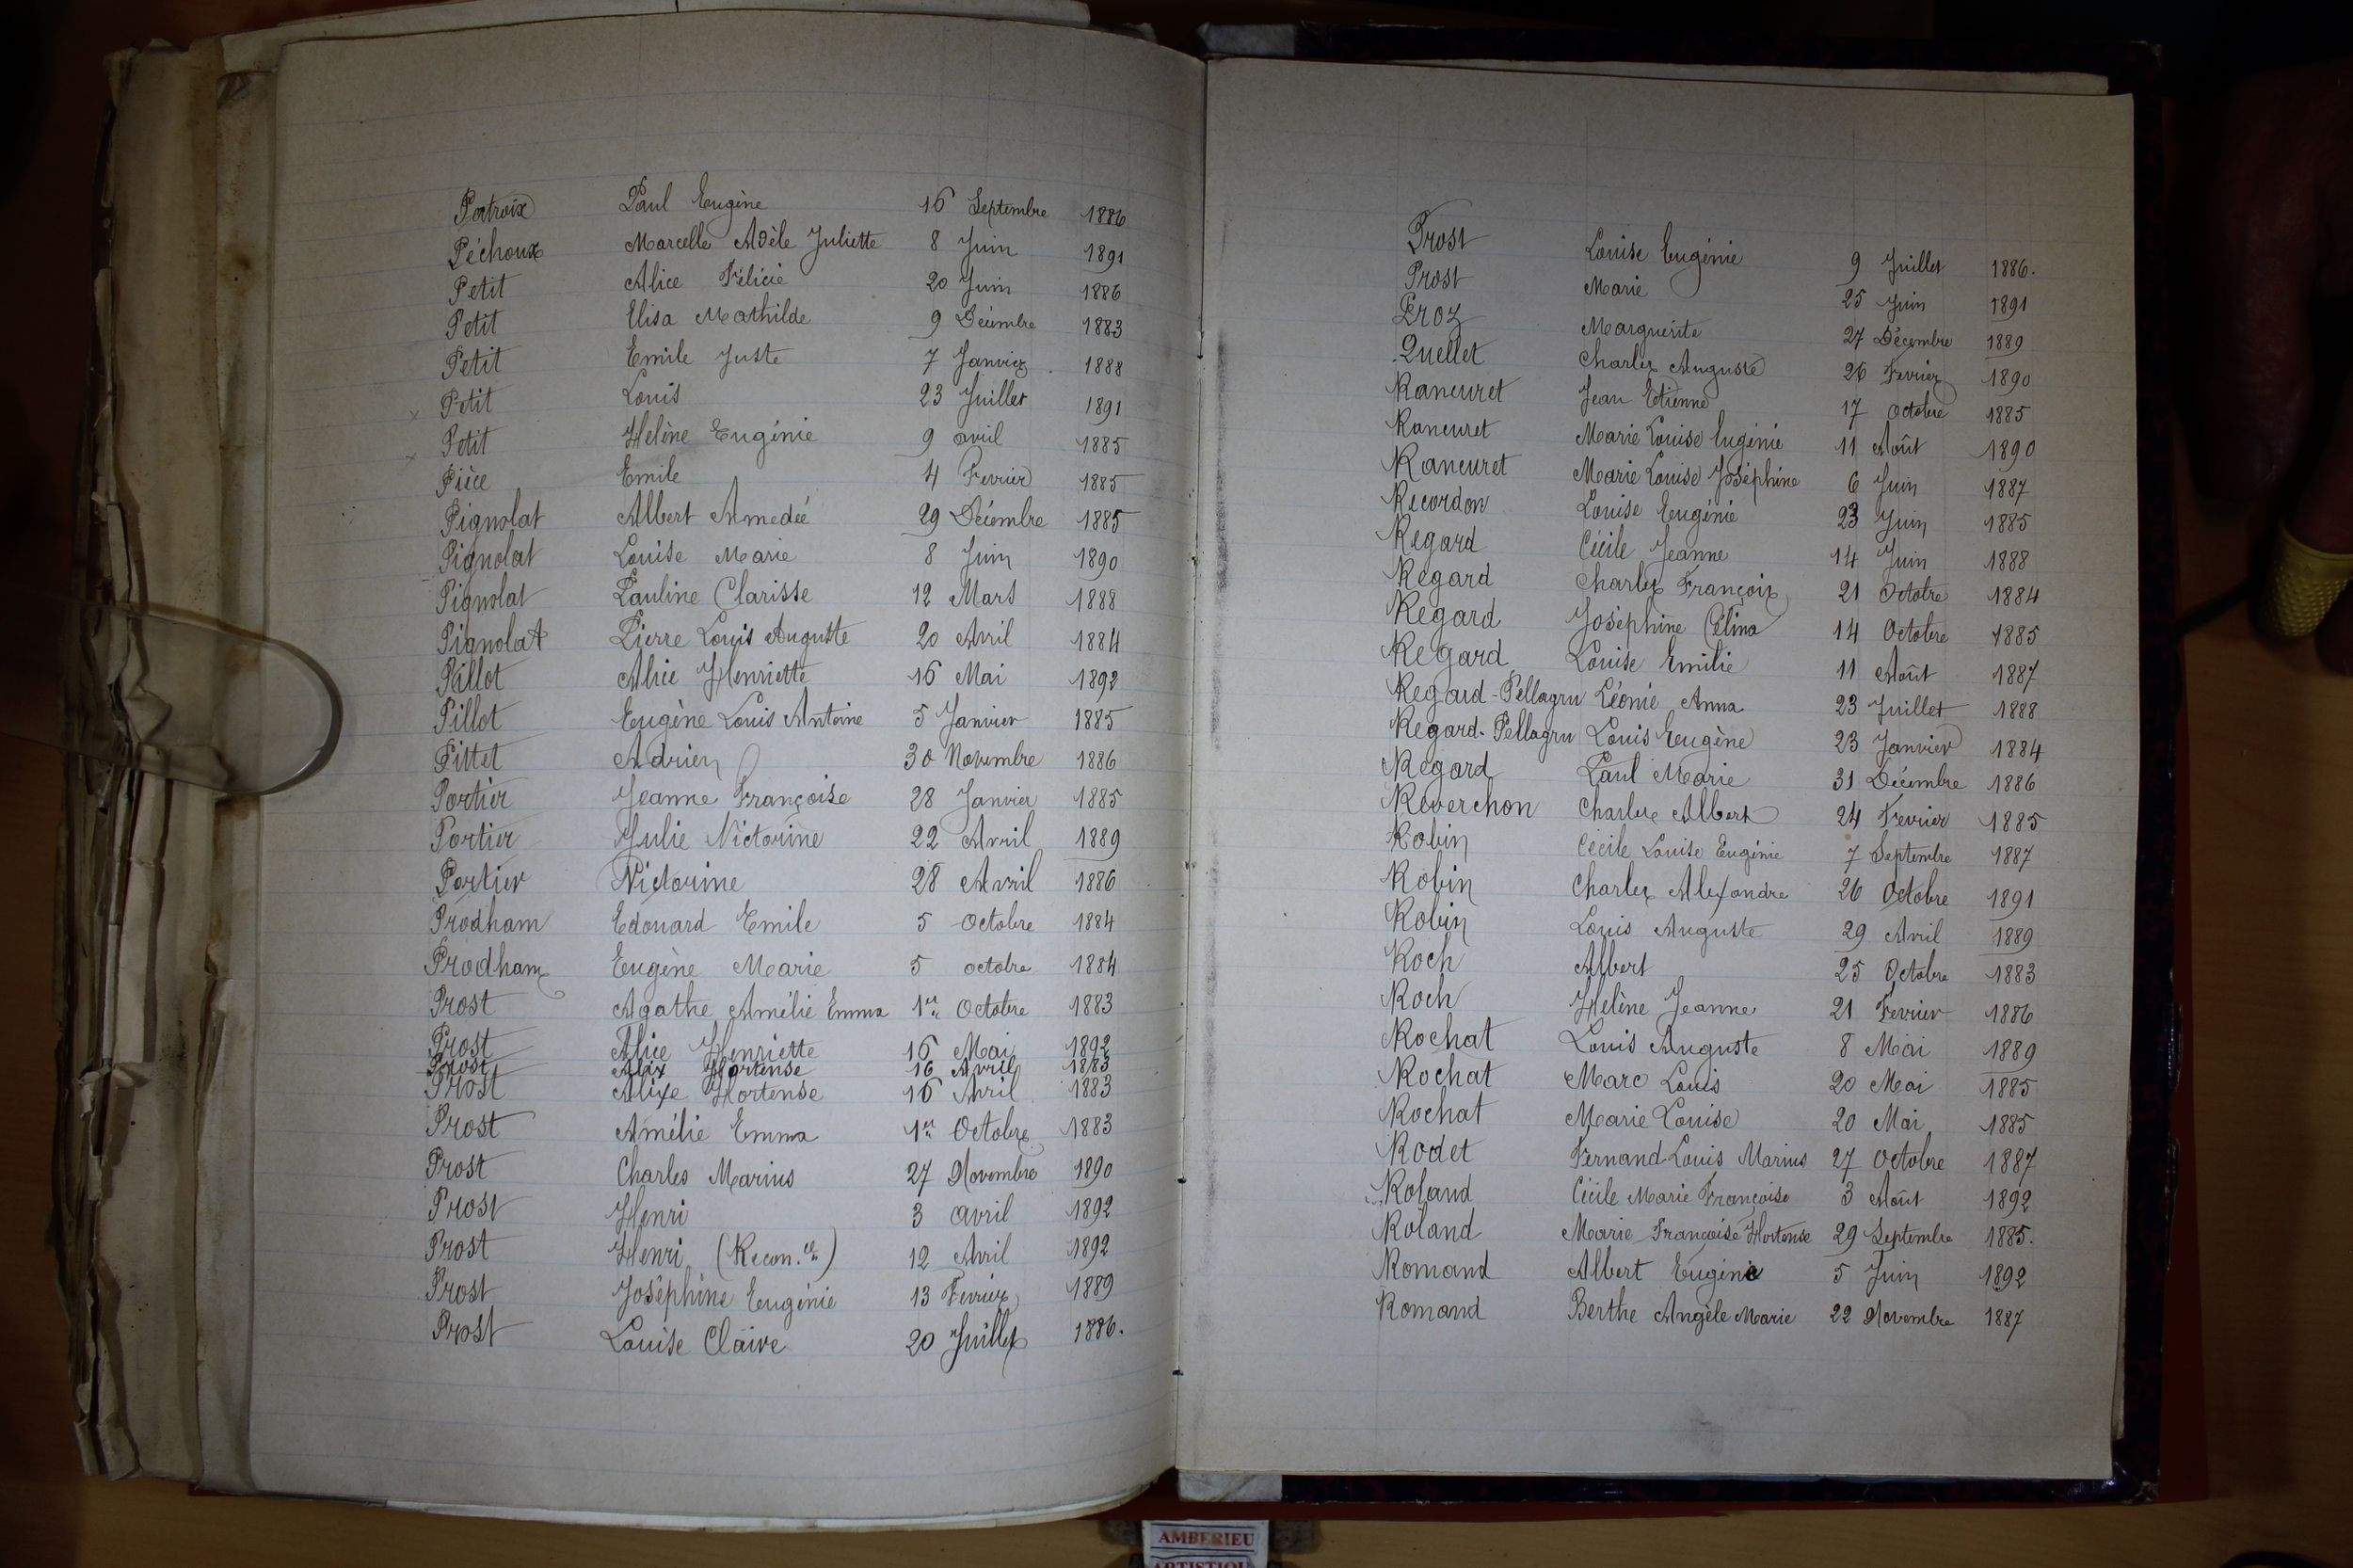 Patroix Paul Eugène 16 Septembre 1886
Péchoux Marcelle Adèle Juliette 8 Juin 1891
Petit Alice Félicie 20 Juin 1886
Petit Elisa Mathilde 9 Décembre 1883
Petit Emile Juste 7 Janvier 1888
x Petit Louis 23 Juillet 1891
x Petit Helène Eugénie 9 avril 1885
Pièce Emile 4 Fevrier 1885
Pignolat Albert Amedée 29 Décembre 1885
Pignolat Louise Marie 8 Juin 1890
Pignolat Pauline Clarisse 12 Mars 1888
Pignolat Pierre Louis Auguste 20 Avril 1884
Pillot Alice Henriette 16 Mai 1892
Pillot Eugène Louis Antoine 5 Janvier 1885
Pittet Adrien 30 Novembre 1886
Portier Jeanne Françoise 28 Janvier 1885
Portier Julie Victorine 22 Avril 1889
Portier Victorine 28 Avril 1886
Prodham Edouard Emile 5 Octobre 1884
Prodham Eugène Marie 5 octobre 1884
Prost Agathe Amélie Emma 1er Octobre 1883
Prost Alice Henriette 16 Mai 1892
Prost Alix Hortense 16 Avril 1883
Prost Alixe Hortense 16 Avril 1883
Prost Amélie Emma 1er Octobre 1883
Prost Charles Marius 27 Novembre 1890
Prost Henri 3 avril 1892
Prost Henri (Recon.ce) 12 Avril 1892
Prost Joséphine Eugénie 13 Fevrier 1889
Prost Louise Claire 20 Juillet 1886.
Prost Louise Eugénie 9 Juillet 1886.
Prost Marie 25 Juin 1891
Proz Marguerite 27 Décembre 1889
Quellet Charles Auguste 26 Fevrier 1890
Rancuret Jean Etienne 17 Octobre 1885
Rancuret Marie Louise Eugénie 11 Août 1890
Rancuret Marie Louise Joséphine 6 Juin 1887
Recordon Louise Eugénie 23 Juin 1885
Regard Cécile Jeanne 14 Juin 1888
Regard Charles François 21 Octobre 1884
Regard Joséphine Célina 14 Octobre 1885
Regard Louise Emilie 11 Août 1887
Regard-Pellagru Léonie Anna 23 Juillet 1888
Regard-Pellagru Louis Eugène 23 Janvier 1884
Regard Paul Marie 31 Décembre 1886
Reverchon Charles Albert 24 Fevrier 1885
Robin Cécile Louise Eugénie 7 Septembre 1887
Robin Charles Alexandre 26 Octobre 1891
Robin Louis Auguste 29 Avril 1889
Roch Albert 25 Octobre 1883
Roch Helène Jeanne 21 Fevrier 1886
Rochat Louis Auguste 8 Mai 1889
Rochat Marc Louis 20 Mai 1885
Rochat Marie Louise 20 Mai 1885
Rodet Fernand Louis Marius 27 Octobre 1887
Roland Cécile Marie Françoise 3 Août 1892
Roland Marie Françoise Hortense 29 Septembre 1885.
Romand Albert Eugène 5 Juin 1892
Romand Berthe Angèle Marie 22 Novembre 1887
AMBERIEU